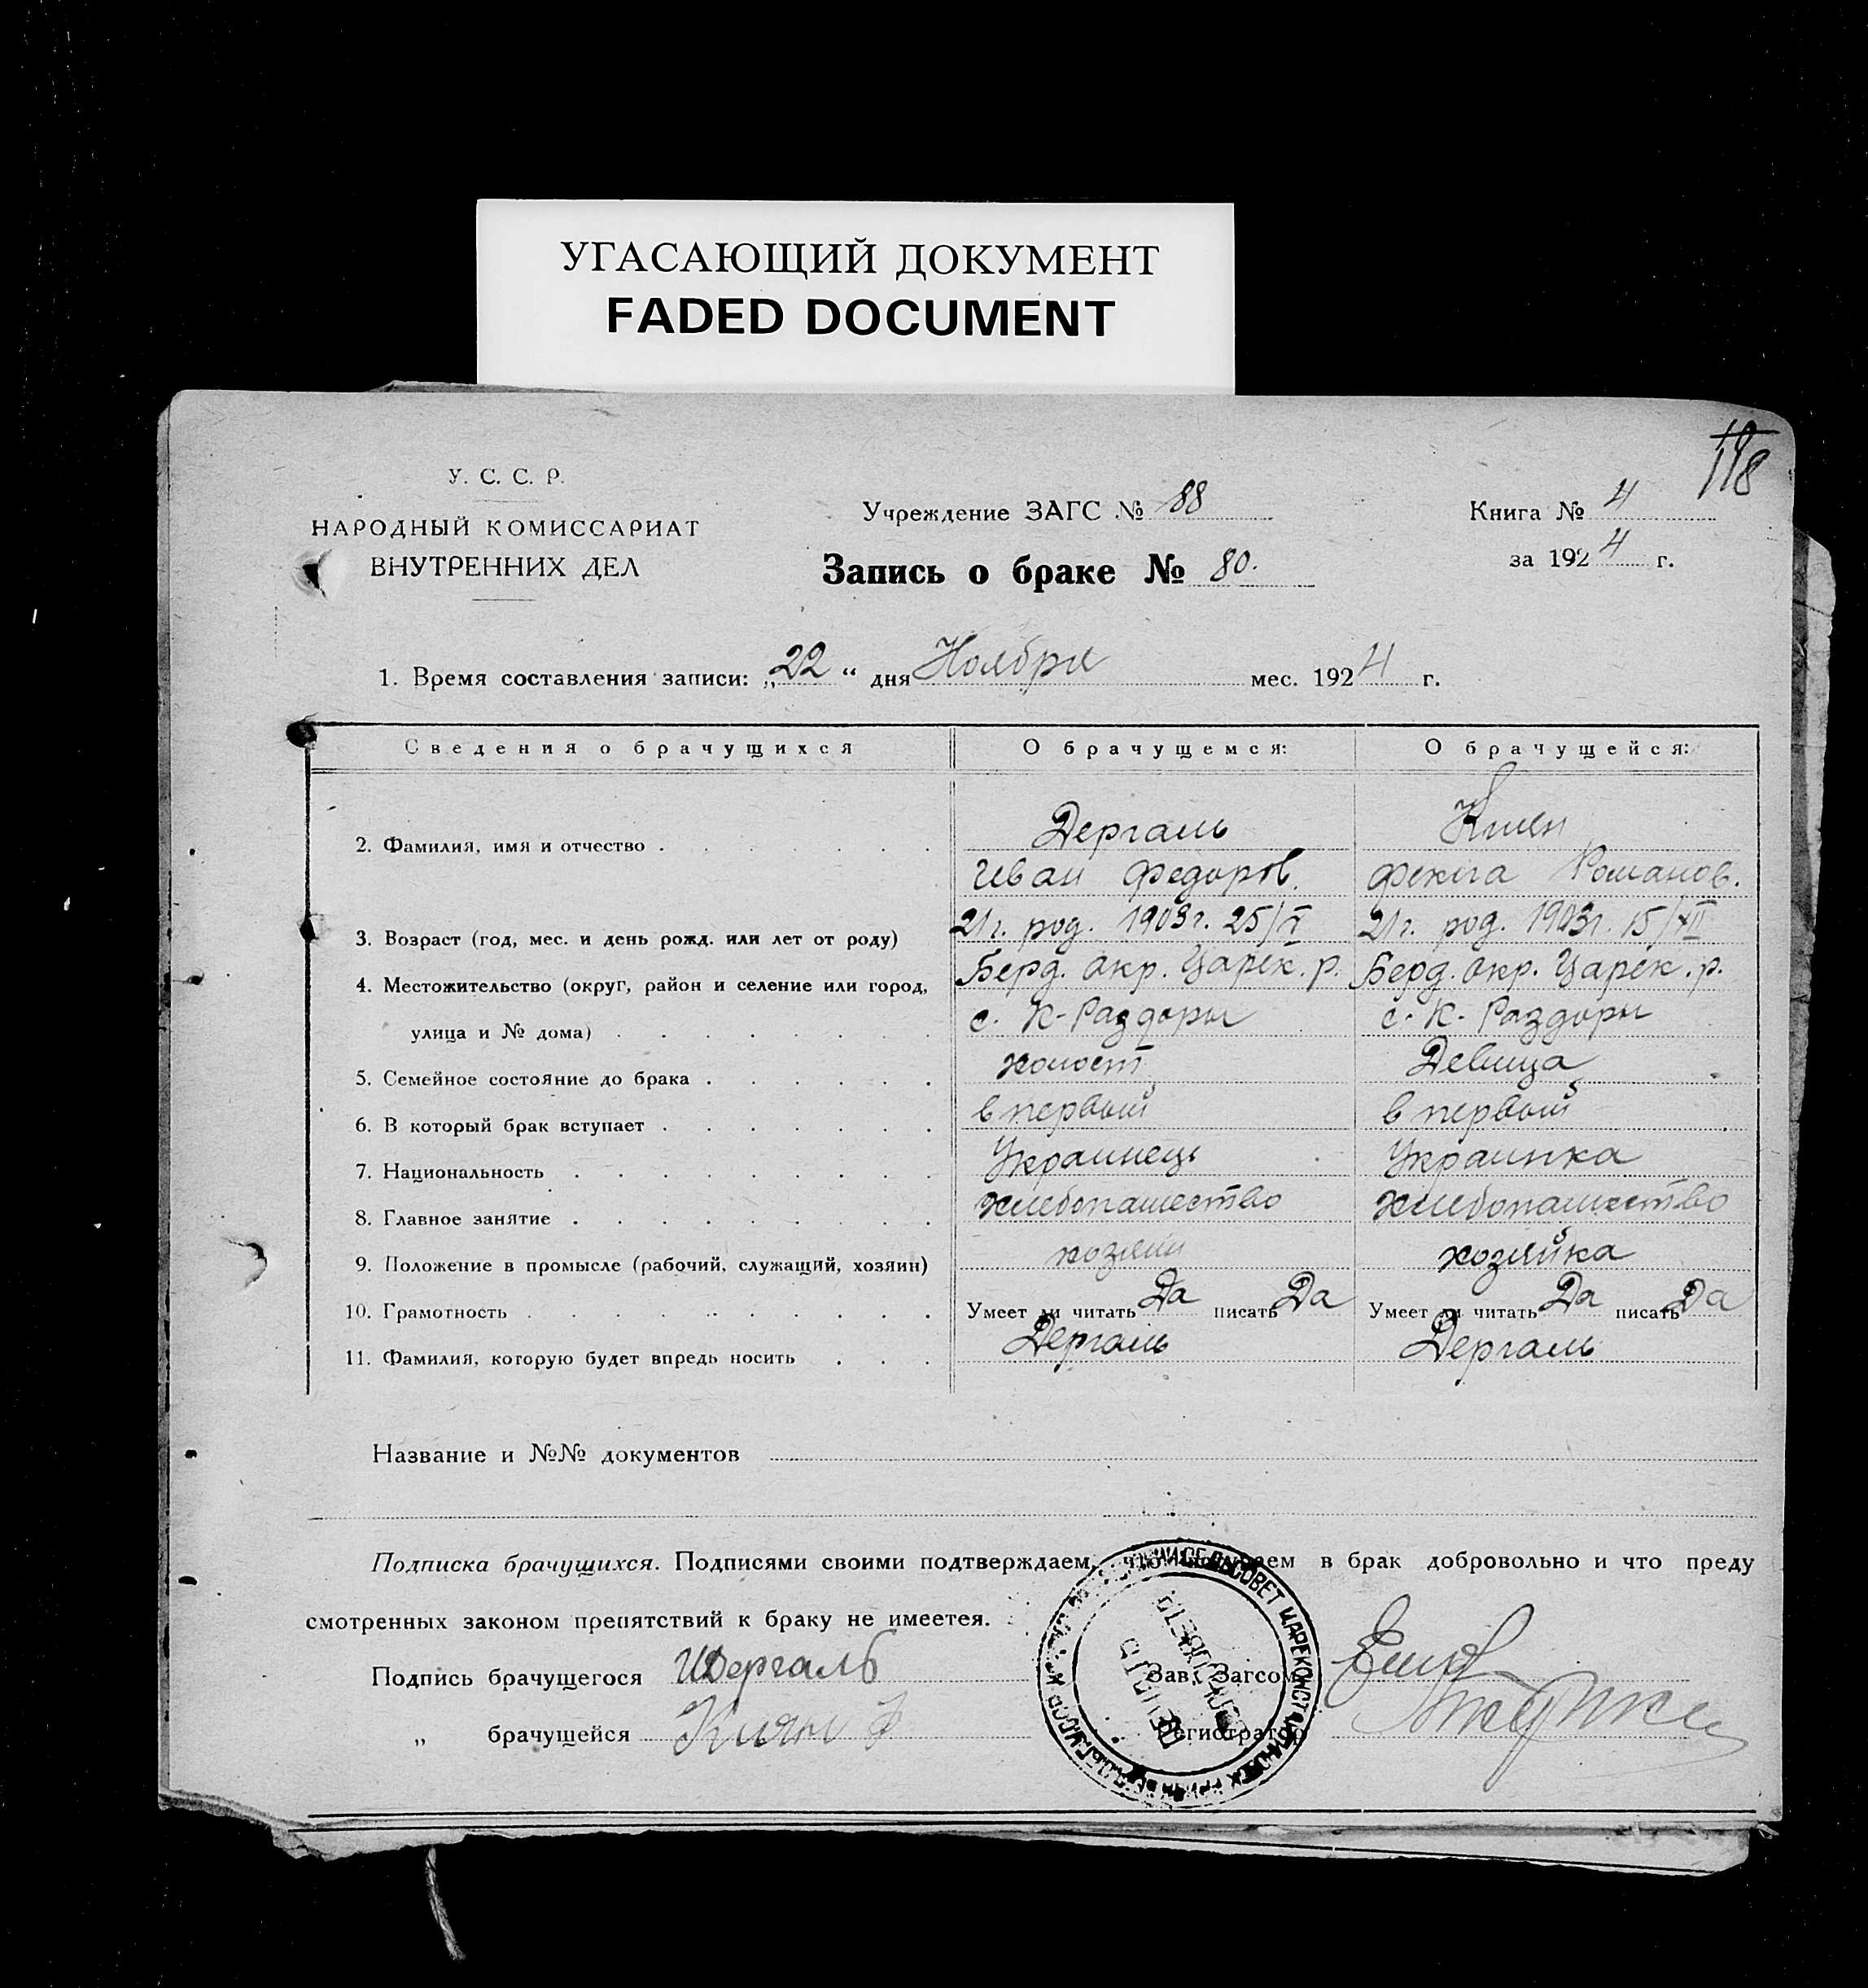 УГАСАЮЩИЙ ДОКУМЕНТ
FADED DOCUMENT
118
У. С. С. Р.
НАРОДНЫЙ КОМИССАРИАТ
ВНУТРЕННИХ ДЕЛ
Учреждение ЗАГС № 88
Запись о браке № 80.
Книга № 4
за 1924 г.
1. Время составления записи: „22“ дня Ноября мес. 1924 г.
Сведения о брачущихся О брачущемся: О брачущейся:
2. Фамилия, имя и отчество Дергаль Киян
Иван Федоров. Фекла Романов.
3. Возраст (год, мес. и день рожд. или лет от роду) 21г. род. 1903г. 25/X 21г. род. 1903г. 15/XII
4. Местожительство (округ, район и селение или город, Берд. окр. Царек. р. Берд. окр. Царек. р.
улица и № дома) с. К-Раздоры с. К-Раздоры
5. Семейное состояние до брака холост Девица
6. В который брак вступает в первый в первый
7. Национальность Украинець Украинка
8. Главное занятие хлебопашество хлебопашество
9. Положение в промысле (рабочий, служащий, хозяин) хозяин хозяйка
10. Грамотность Умеет ли читать Да писать Да Умеет ли читать Да писать Да
11. Фамилия, которую будет впредь носить Дергаль Дергаль
Название и №№ документов
Подписка брачущихся. Подписями своими подтверждаем, что вступаем в брак добровольно и что преду
смотренных законом препятствий к браку не имеетея.
Подпись брачущегося ИДергаль Зав. Загсом
„ брачущейся Киян Ф Регистратор
СЕЛЬСОВЕТ ЦАРЕКОНСТАНТИНОВСК